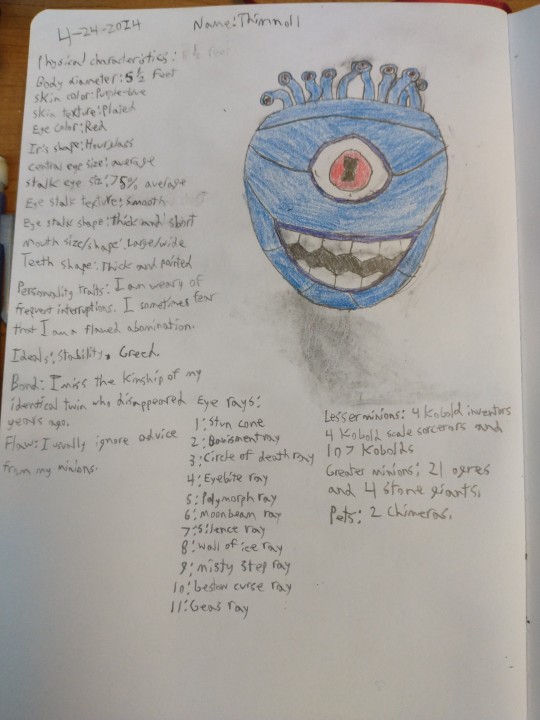 4-24-2014
Name: Thimnoll
Physical characteristics:
Body diameter: 5 1/2 Foot
Skin color: Purple-blue
Skin texture: Plated
Eye color: Red
Iris shape: Hourglass
central eye size: average
stalk eye siz: 75% average
Eye stalk texture: smooth
Eye stalk shape: thick and short
Mouth size/shape: Large/wide
Teeth shape: Thick and pointed
Personality traits: I am weary of
frequent interruptions. I sometimes fear
that I am a flawed abomination.
Ideals: Stability, Greed.
Bond: I miss the kinship of my
identical twin who disappeared
years ago.
Flaw: I usually ignore advice
from my minions.
Eye rays:
1: Stun cone
2: Banishment ray
3: Circle of death ray
4: Eyebite ray
5: Polymorph ray
6: moonbeam ray
7: Silence ray
8: wall of ice ray
9: misty step ray
10: bestow curse ray
11: Geas ray
Lesser minions: 4 Kobold inventors
4 Kobold scale sorcerors and
107 Kobolds
Greater minions: 21 ogres
and 4 stone giants.
Pets: 2 Chimeras.